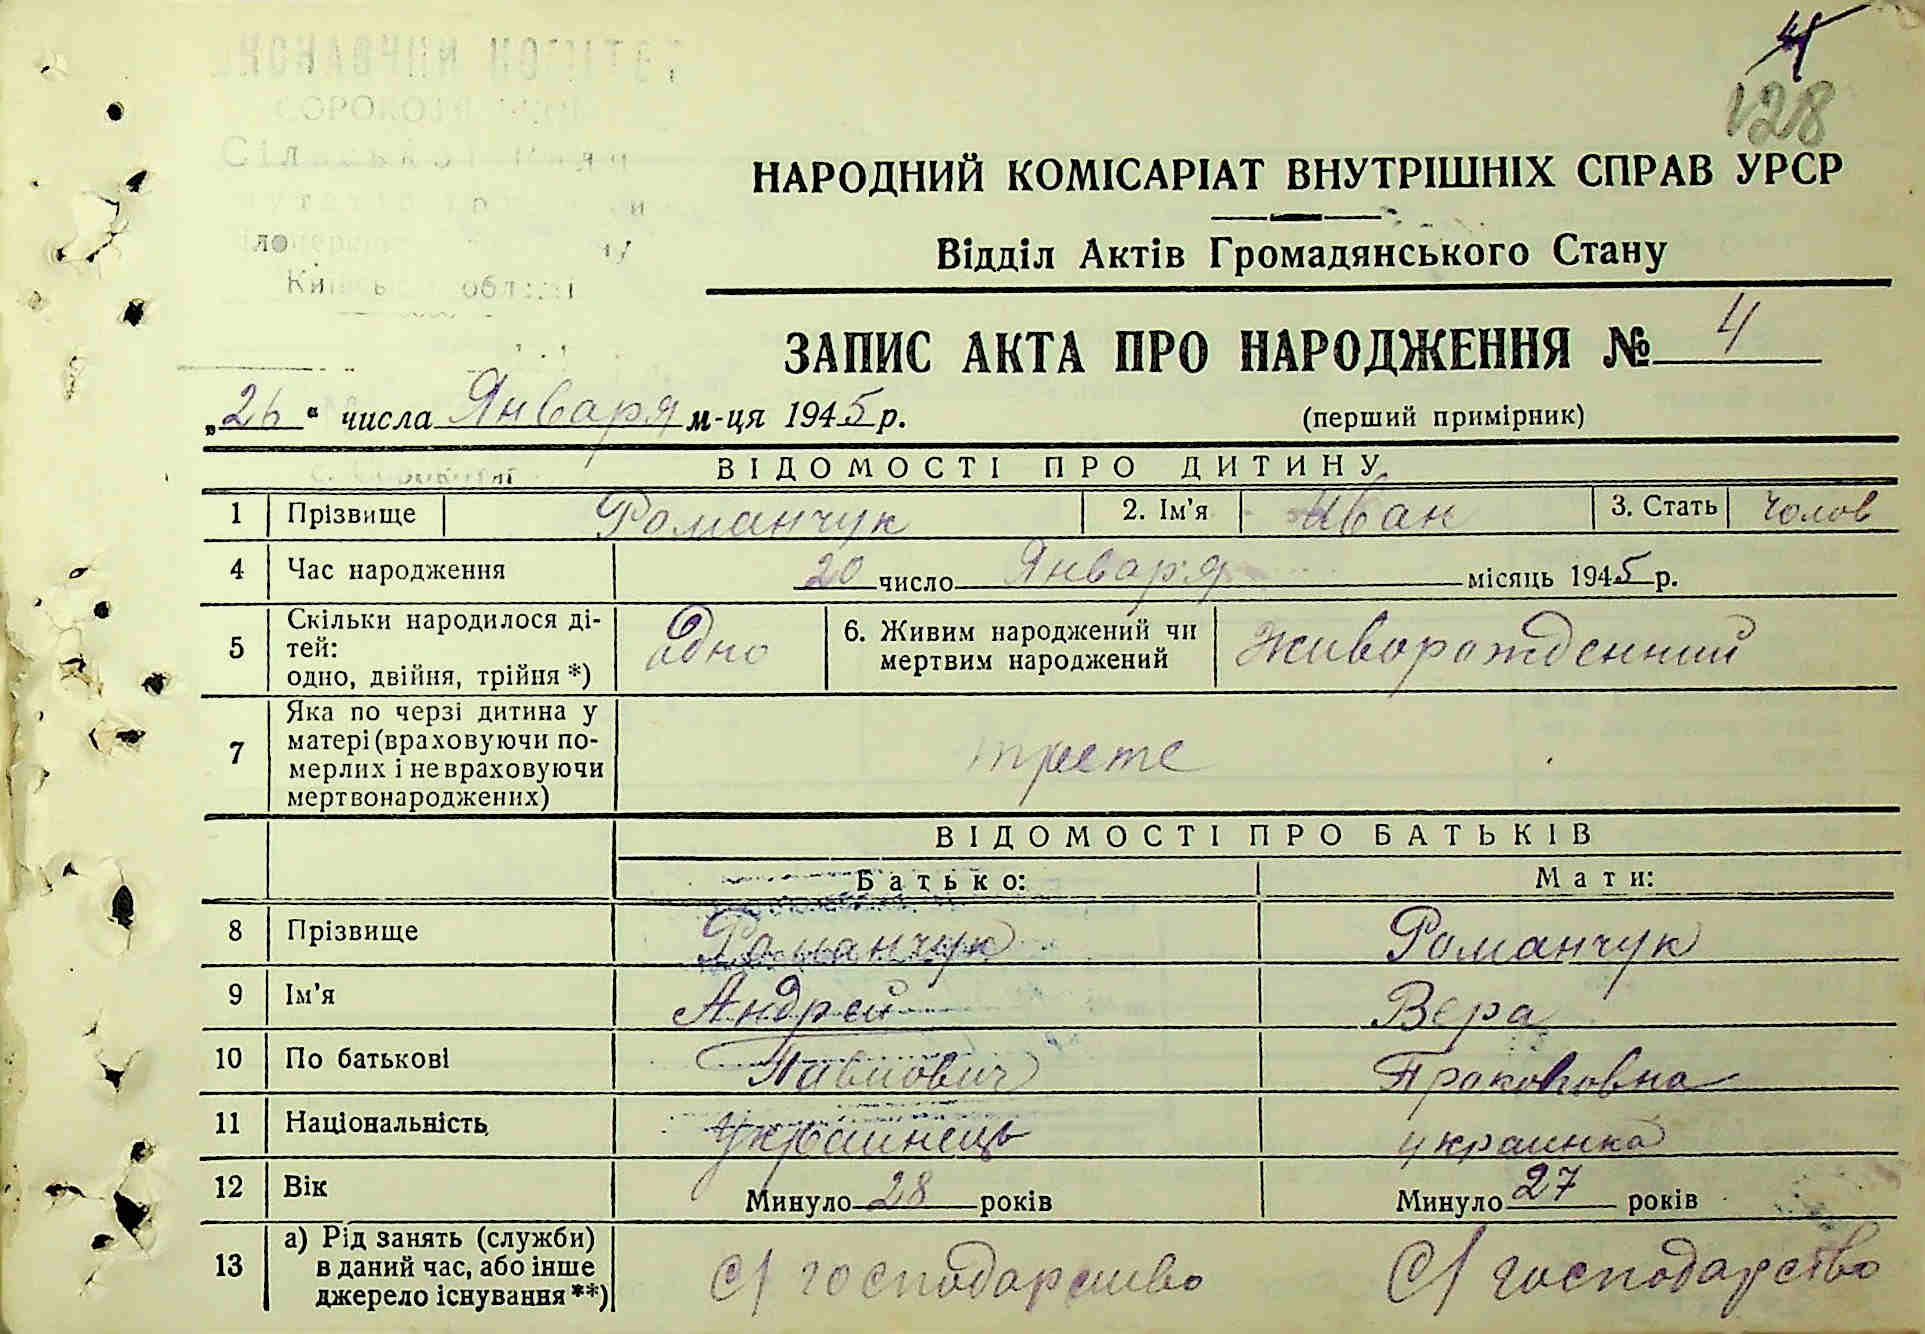 128
НАРОДНИЙ КОМІСАРІАТ ВНУТРІШНІХ СПРАВ УРСР
Відділ Актів Громадянського Стану
ЗАПИС АКТА ПРО НАРОДЖЕННЯ № 4
„26“ числа Января м-ця 1945 р.
(перший примірник)
ВІДОМОСТІ ПРО ДИТИНУ
1 Прізвище Романчук 2. Ім'я Иван 3. Стать Чолов
4 Час народження 20 число Января місяць 1945 р.
5 Скільки народилося ді-
тей:
одно, двійня, трійня *) Одно
6. Живим народжений чи
мертвим народжений Живорожденний
7 Яка по черзі дитина у
матері (враховуючи по-
мерлих і не враховуючи
мертвонароджених) трете
ВІДОМОСТІ ПРО БАТЬКІВ
Батько: Мати:
8 Прізвище Романчук Романчук
9 Ім'я Андрей Вера
10 По батькові Павлович Прокоповна
11 Національність украинець украинка
12 Вік Минуло 28 років Минуло 27 років
13 а) Рід занять (служби)
в даний час, або інше
джерело існування **) С/господарство С/господарство